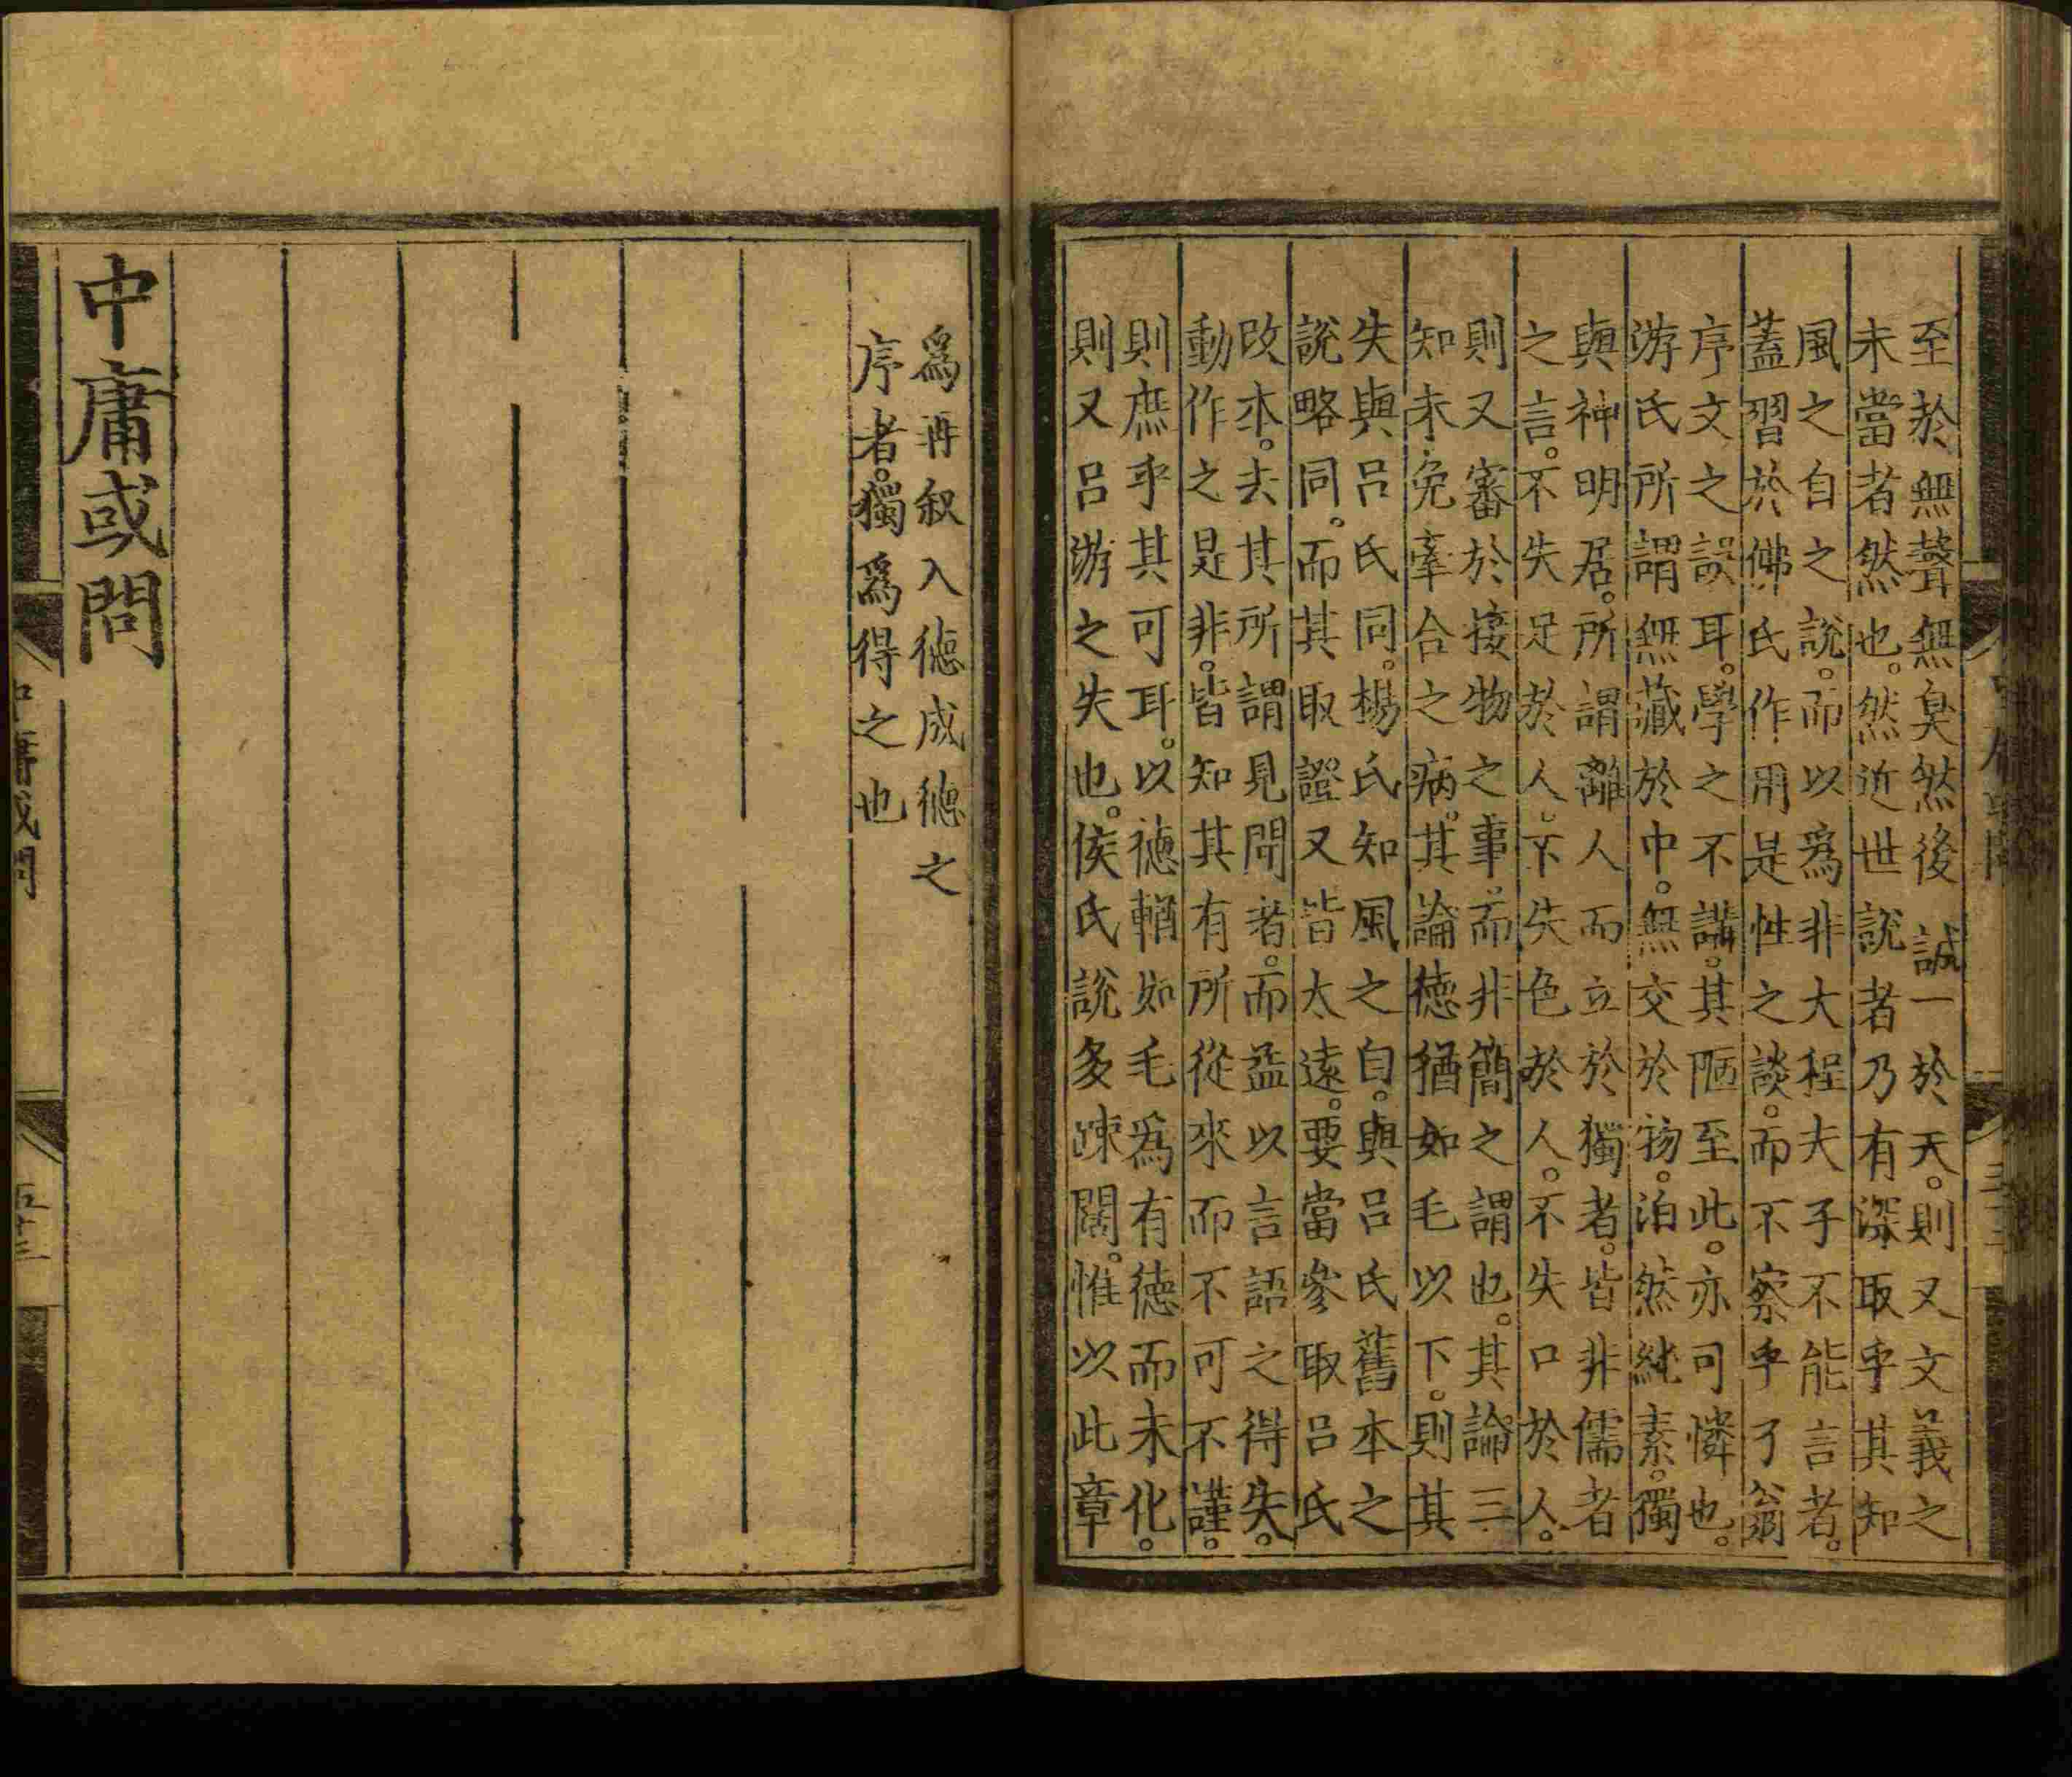 至於無聲無臭然後誠一於天。則又文義之
未當者然也。然近世說者乃有深取乎其知
風之自之說。而以爲非大程夫子不能言者。
蓋習於佛氏作用是性之談。而不察乎了翁
序文之誤耳。學之不講。其陋至此。亦可憐也。
游氏所謂無藏於中。無交於物。泊然純素。獨
與神明居。所謂離人而立於獨者。皆非儒者
之言。不失足於人。不失色於人。不失口於人。
則又審於接物之事。而非簡之謂也。其論三
知未免牽合之病。其論德猶如毛以下。則其
失與呂氏同。楊氏知風之自。與呂氏舊本之
說略同。而其取證又皆太遠。要當參取呂氏
改本。去其所謂見聞者。而益以言語之得失。
動作之是非。皆知其有所從來而不可不謹。
則庶乎其可耳。以德輶如毛爲有德而未化。
則又呂游之失也。侯氏說多踈闊。惟以此章
爲再叙入德成德之
序者。獨爲得之也
中庸或問
中庸或問
五十三